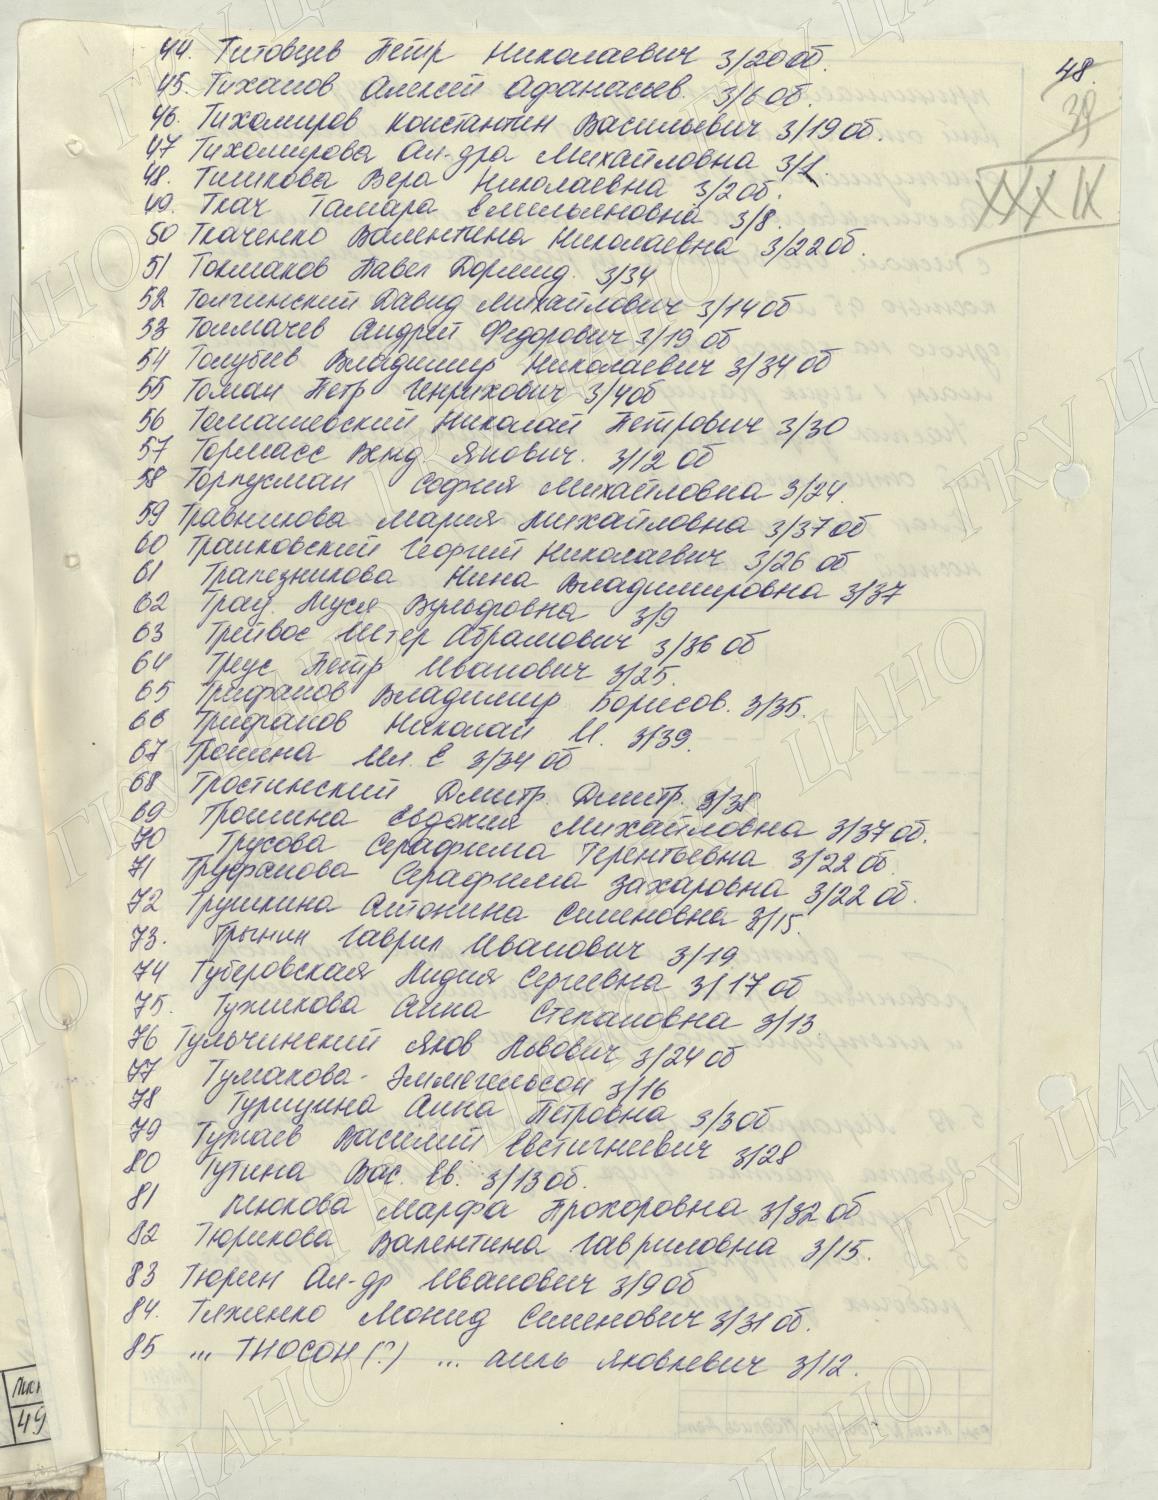 44. Титовцев Петр Николаевич 3/20 об.
48.
45. Тиханов Алексей Афанасьев. 3/6 об.
46. Тихомиров Константин Васильевич 3/19 об.
39
47 Тихомирова Ал-дра Михайловна 3/1.
48. Тишкова Вера Николаевна 3/2 об.
XXXIX
49. Ткач Тамара Емельяновна 3/8.
50 Ткаченко Валентина Николаевна 3/22 об.
51 Токмаков Павел Дормид. 3/34
52 Толчинский Давид Михайлович 3/14 об
53 Толмачев Андрей Федорович 3/19 об
54 Толубеев Владимир Николаевич 3/34 об
55 Томан Петр Генрихович 3/4 об
56 Томашевский Николай Петрович 3/30
57 Тормасс Янович. 3/12 об
58 Торпусман София Михайловна 3/24.
59 Травникова Мария Михайловна 3/37 об
60 Траиковский Георгий Николаевич 3/26 об
61 Трапезникова Нина Владимировна 3/37
62 Трац. Муся Вульфовна 3/9
63 Трейвос Абрамович 3/36 об
64 Треус Петр Иванович 3/25.
65 Трифанов Владимир Борисов. 3/35.
66 Трифанов Николай И. 3/39.
67 Тронина Ил. Е 3/34 об
68 Тростинский Дмитр. Дмитр. 3/38
69 Трошина Евдокия Михайловна 3/37 об.
70 Трусова Серафима Терентьевна 3/22 об.
71 Труфанова Серафима Захаровна 3/22 об.
72 Трушкина Антонина Семеновна 3/15.
73. Трынин Гаврил Иванович 3/19
74 Туберовская Лидия Сергеевна 3/17 об
75. Тужикова Анна Степановна 3/13
76 Тульчинский Яков Львович 3/24 об
77 Тумакова-Эммегильсон 3/16
78 Турицина Анна Петровна 3/3 об
79 Тутаев Василий Евстигнеевич 3/28
80 Тутина Вас. Ев. 3/13 об.
81 Тюкова Марфа Прохоровна 3/32 об
82 Тюрикова Валентина Гавриловна 3/15.
83 Тюрин Ал-др Иванович 3/9 об
84. Тяженко Леонид Семенович 3/31 об.
85 ... ТНОСОН (?) ... аиль Яковлевич 3/12.
49
ГКУ ЦАНО